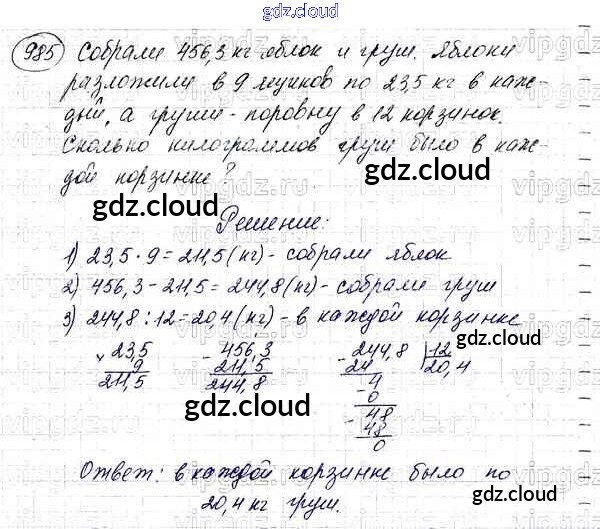 gdz.cloud
985 Собрали 456,3 кг яблок и груш. Яблоки
разложили в 9 ящиков по 23,5 кг в каж-
дый, а груши - поровну в 12 корзинок.
Сколько килограммов груш было в каж-
дой корзинке?
gdz.cloud
gdz.cloud
Решение:
1) 23,5 · 9 = 211,5 (кг) - собрали яблок
2) 456,3 - 211,5 = 244,8 (кг) - собрали груш
3) 244,8 : 12 = 20,4 (кг) - в каждой корзинке
× 23,5 - 456,3 - 244,8 | 12
9 211,5 24 20,4
211,5 244,8 - 4
0
- 48
48
0
gdz.cloud
gdz.cloud
gdz.cloud
Ответ: в каждой корзинке было по
20,4 кг груш.
gdz.cloud
gdz.cloud